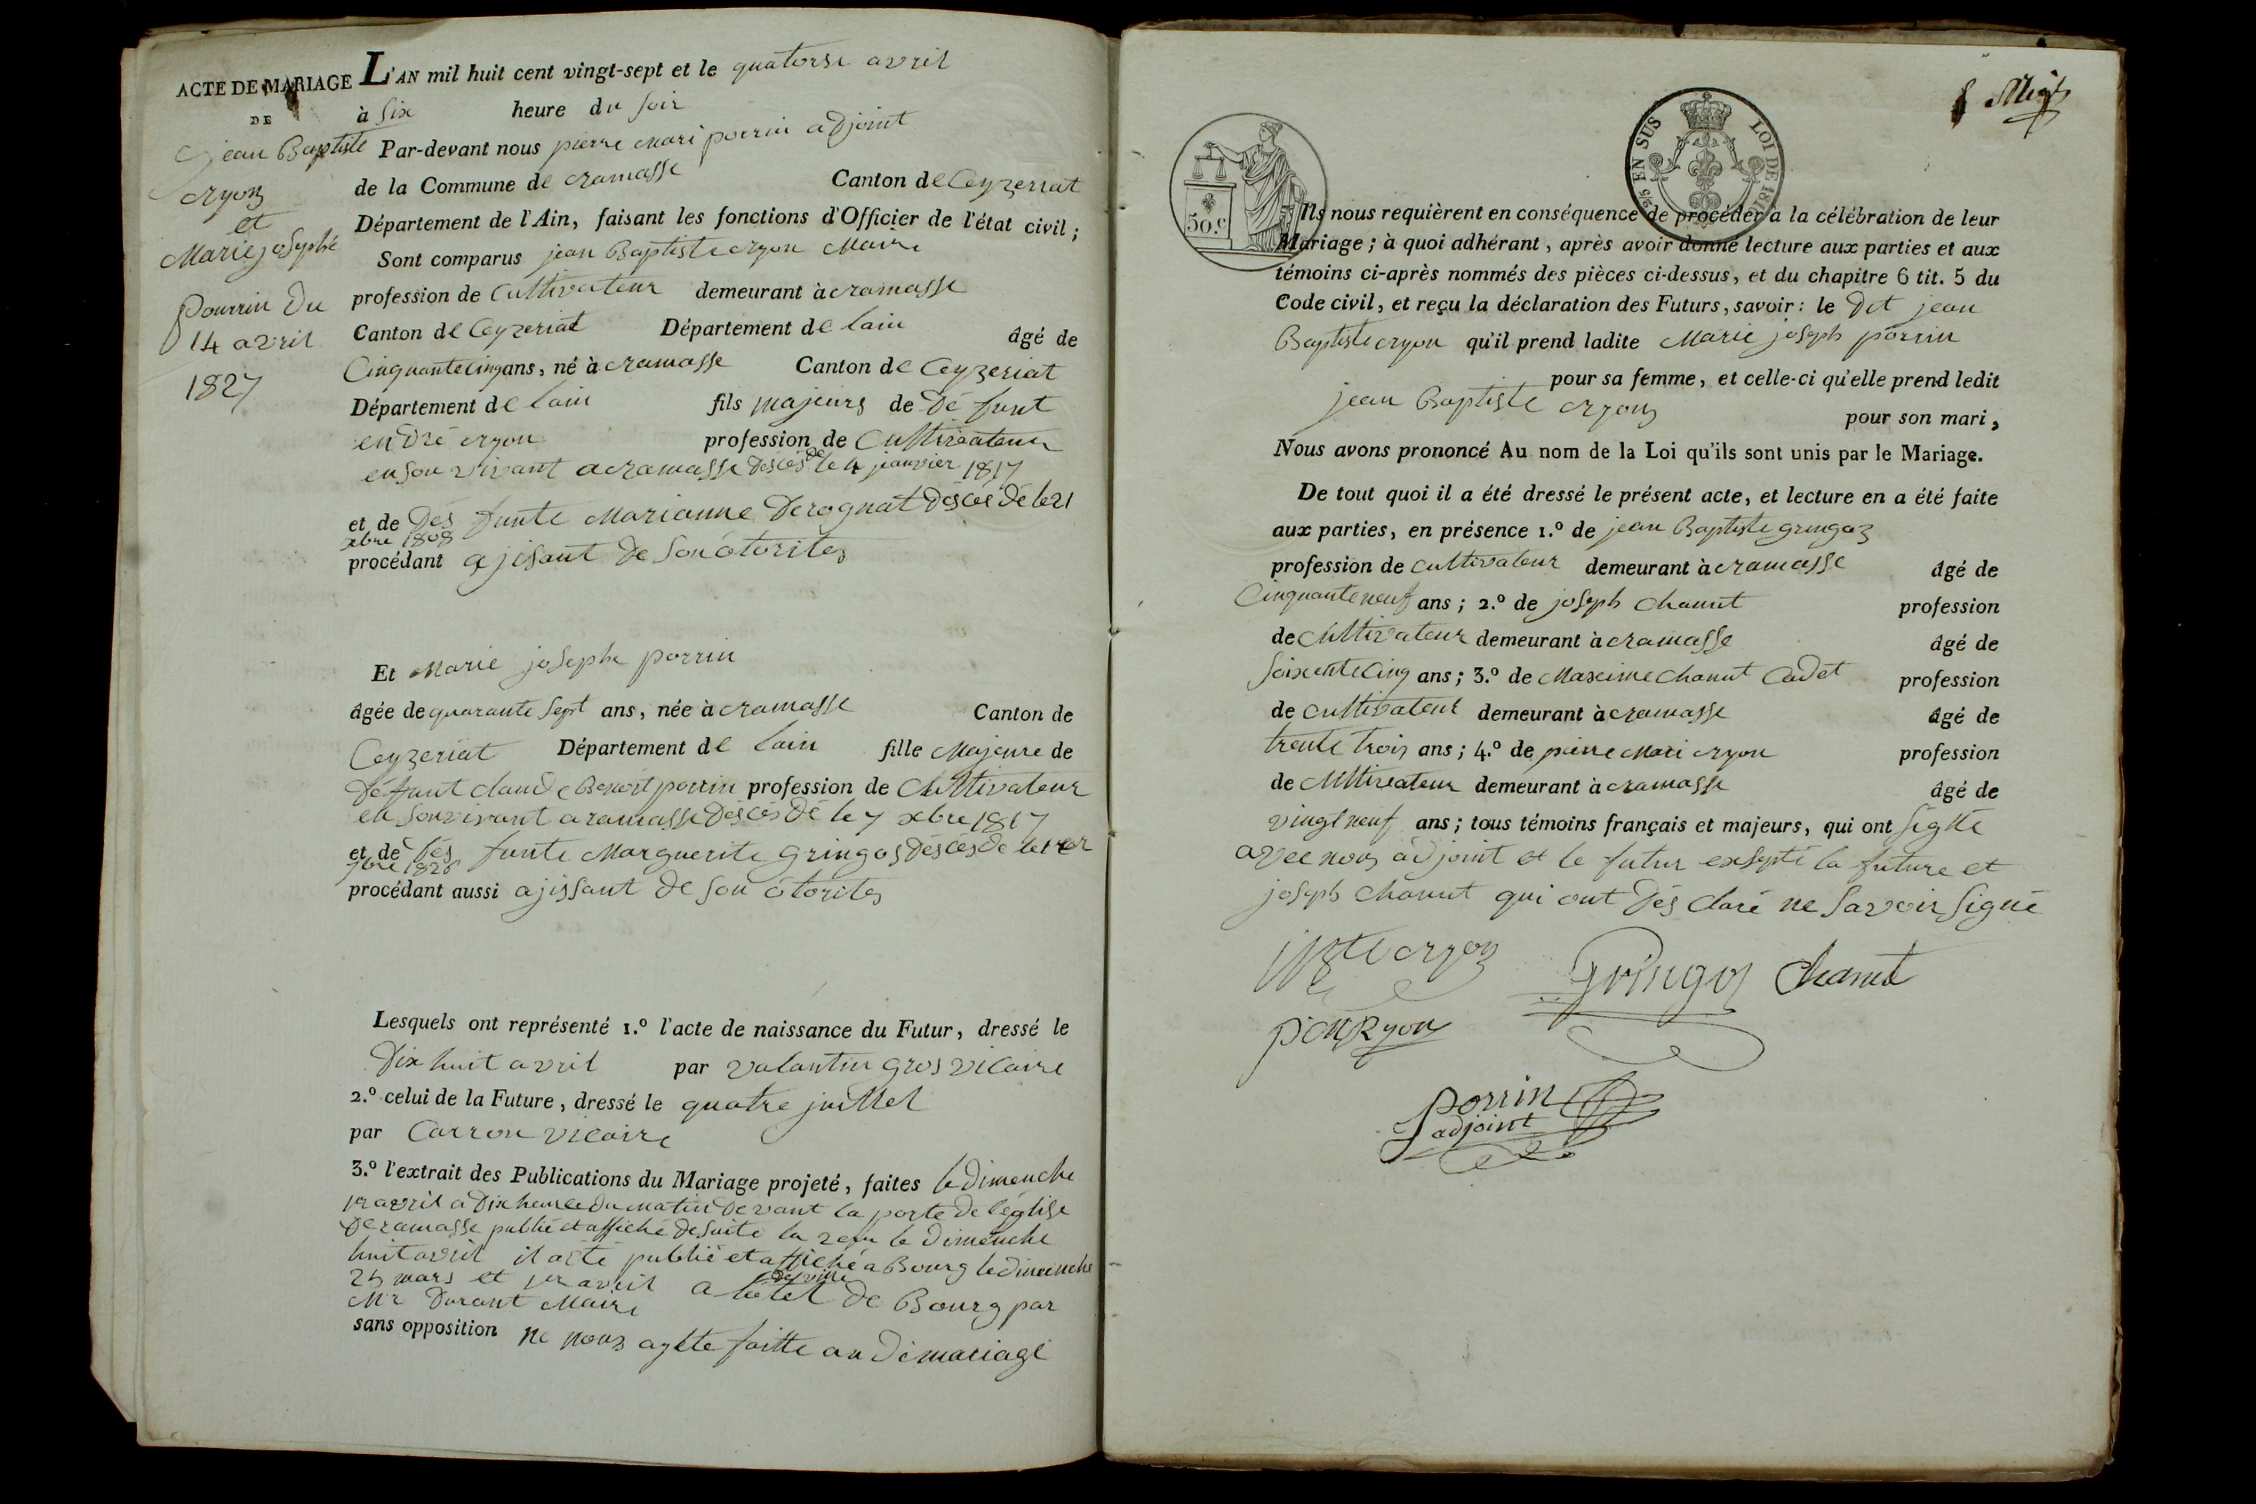 ACTE DE MARIAGE
DE
jean Baptiste
cryon
et
Marie josephe
Pourrin du
14 avril
1827
L'AN mil huit cent vingt-sept et le quatorse avril
à six heure du soir
Par-devant nous pierre mari porrin adjoint
de la Commune de cramasse Canton de Ceyzerrat
Département de l'Ain, faisant les fonctions d'Officier de l'état civil ;
Sont comparus jean Baptiste cryon Maire
profession de Cultivateur demeurant à cramasse
Canton de Ceyzeriat Département de lain âgé de
Cinquante cinq ans, né à cramasse Canton de Ceyzeriat
Département de lain fils majeurs de dé funt
endré cryon profession de Cultivateur
en son vivant a cramasse déscés dé le 4 janvier 1817
et de dés funte Marianne Derognat déscés dé le 21
xbre 1808
procédant ajisant de son otorités
Et Marie josephe porrin
âgée de quarante sept ans, née à cramasse Canton de
Ceyzeriat Département de lain fille Majeure de
défunt claude Benoit porrin profession de Cultivateur
en son vivant a ramasse déscés dé le 7 xbre 1817
et de dés funte Marguerite gringos déscés dé le 1er
procédant aussi ajissant de son otorités
Lesquels ont représenté 1.º l'acte de naissance du Futur, dressé le
dix huit avril par valantin gros vicaire
2.º celui de la Future, dressé le quatre juillet
par Carron vicaire
3.º l'extrait des Publications du Mariage projeté, faites le dimenche
1er avril a dix heure du matin devant la porte de l'église
de ramasse publié et affiché de suite la le dimenche
huit avril il a été publié et affiché a Bourg le dimenche
25 mars et 1er avril a lotel de ville de Bourg par
Mr Durant Maire
sans opposition ne nous ayete faitte au dé mariage
5o.c
25 EN SUS LOI DE 1816
Ils nous requièrent en conséquence de procéder à la célébration de leur
Mariage ; à quoi adhérant, après avoir donné lecture aux parties et aux
témoins ci-après nommés des pièces ci-dessus, et du chapitre 6 tit. 5 du
Code civil, et reçu la déclaration des Futurs, savoir : le dit jean
Baptiste cryon qu'il prend ladite Marie joseph porrin
pour sa femme, et celle-ci qu'elle prend ledit
jean Baptiste cryon pour son mari,
Nous avons prononcé Au nom de la Loi qu'ils sont unis par le Mariage.
De tout quoi il a été dressé le présent acte, et lecture en a été faite
aux parties, en présence 1.º de jean Baptiste gringoz
profession de cultivateur demeurant à cramasse âgé de
Cinquante neuf ans ; 2.º de joseph chanut profession
de Cultivateur demeurant à cramasse âgé de
soixente Cinq ans ; 3.º de Maxime chanut Cadet profession
de cultivateur demeurant à cramasse âgé de
trente trois ans ; 4.º de pierre Mari cryon profession
de Cultivateur demeurant à cramasse âgé de
vingt neuf ans ; tous témoins français et majeurs, qui ont signé
avec nous adjoint et le futur exsepté la future et
joseph chanut qui ont dés claré ne savoir signé
jBte cryon
Gringoz chanut
p m Ryon
porrin
adjoint